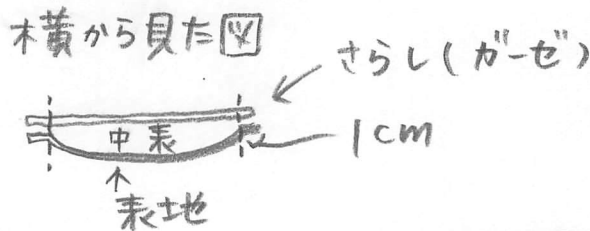 横から見た図
さらし(ガーゼ)
中表
1cm
表地